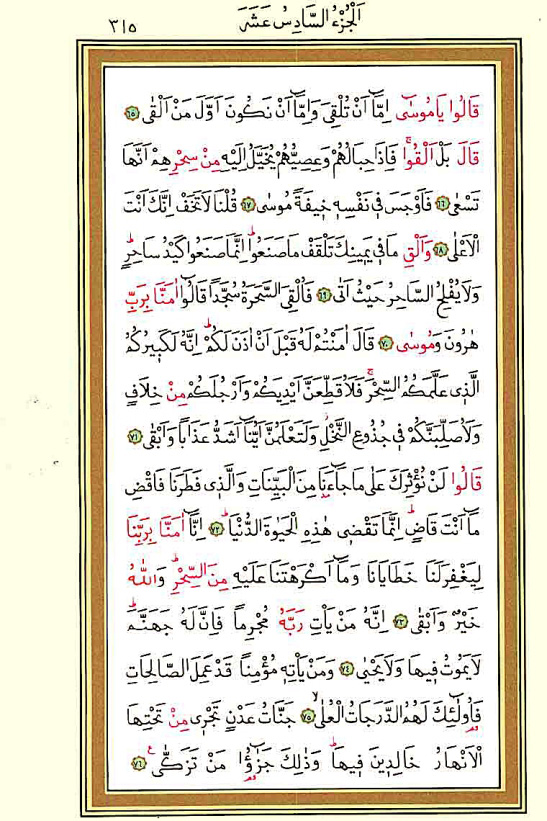 اَلْجُزْءُ السَّادِسُ عَشَرَ ٣١٥
قَالُوا يَامُوسٰٓى اِمَّٓا اَنْ تُلْقِيَ وَاِمَّٓا اَنْ نَكُونَ اَوَّلَ مَنْ اَلْقٰى ﴿٦٥﴾
قَالَ بَلْ اَلْقُواۚ فَاِذَا حِبَالُهُمْ وَعِصِيُّهُمْ يُخَيَّلُ اِلَيْهِ مِنْ سِحْرِهِمْ اَنَّهَا
تَسْعٰى ﴿٦٦﴾ فَاَوْجَسَ فٖي نَفْسِهٖ خٖيفَةً مُوسٰى ﴿٦٧﴾ قُلْنَا لَا تَخَفْ اِنَّكَ اَنْتَ
الْاَعْلٰى ﴿٦٨﴾ وَاَلْقِ مَا فٖي يَمٖينِكَ تَلْقَفْ مَا صَنَعُواؕ اِنَّمَا صَنَعُوا كَيْدُ سَاحِرٍؕ
وَلَا يُفْلِحُ السَّاحِرُ حَيْثُ اَتٰى ﴿٦٩﴾ فَاُلْقِيَ السَّحَرَةُ سُجَّدًا قَالُٓوا اٰمَنَّا بِرَبِّ
هٰرُونَ وَمُوسٰى ﴿٧٠﴾ قَالَ اٰمَنْتُمْ لَهُ قَبْلَ اَنْ اٰذَنَ لَكُمْؕ اِنَّهُ لَكَبٖيرُكُمُ
الَّذٖي عَلَّمَكُمُ السِّحْرَۚ فَلَاُقَطِّعَنَّ اَيْدِيَكُمْ وَاَرْجُلَكُمْ مِنْ خِلَافٍ
وَلَاُصَلِّبَنَّكُمْ فٖي جُذُوعِ النَّخْلِؗ وَلَتَعْلَمُنَّ اَيُّنَٓا اَشَدُّ عَذَابًا وَاَبْقٰى ﴿٧١﴾
قَالُوا لَنْ نُؤْثِرَكَ عَلٰى مَا جَٓاءَنَا مِنَ الْبَيِّنَاتِ وَالَّذٖي فَطَرَنَا فَاقْضِ
مَٓا اَنْتَ قَاضٍؕ اِنَّمَا تَقْضٖي هٰذِهِ الْحَيٰوةَ الدُّنْيَاؕ ﴿٧٢﴾ اِنَّٓا اٰمَنَّا بِرَبِّنَا
لِيَغْفِرَ لَنَا خَطَايَانَا وَمَٓا اَكْرَهْتَنَا عَلَيْهِ مِنَ السِّحْرِؕ وَاللّٰهُ
خَيْرٌ وَاَبْقٰى ﴿٧٣﴾ اِنَّهُ مَنْ يَأْتِ رَبَّهُ مُجْرِمًا فَاِنَّ لَهُ جَهَنَّمَؕ
لَا يَمُوتُ فٖيهَا وَلَا يَحْيٰى ﴿٧٤﴾ وَمَنْ يَأْتِهٖ مُؤْمِنًا قَدْ عَمِلَ الصَّالِحَاتِ
فَاُولٰٓئِكَ لَهُمُ الدَّرَجَاتُ الْعُلٰىۙ ﴿٧٥﴾ جَنَّاتُ عَدْنٍ تَجْرٖي مِنْ تَحْتِهَا
الْاَنْهَارُ خَالِدٖينَ فٖيهَاؕ وَذٰلِكَ جَزٰٓؤُا مَنْ تَزَكّٰى ﴿٧٦﴾ ع